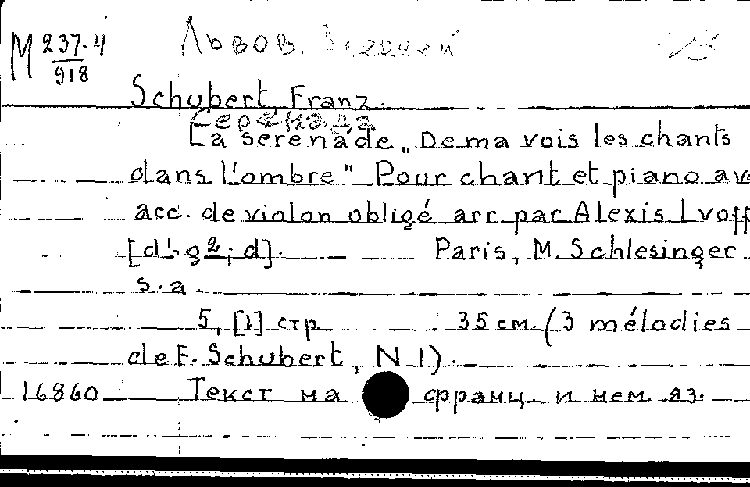 М 237.4
918
Львов.
Schubert, Franz.
Серенада
La sérénade „ De ma vois les chants
dans l'ombre" Pour chant et piano av
acc. de violon obligé arr par Alexis Lvoff
[d¹-g2; d]. Paris, M. Schlesinger
s.a.
5, [1] стр 35 см. (3 mélodies
de F. Schubert, N 1).
16860 Текст на франц. и нем. яз.